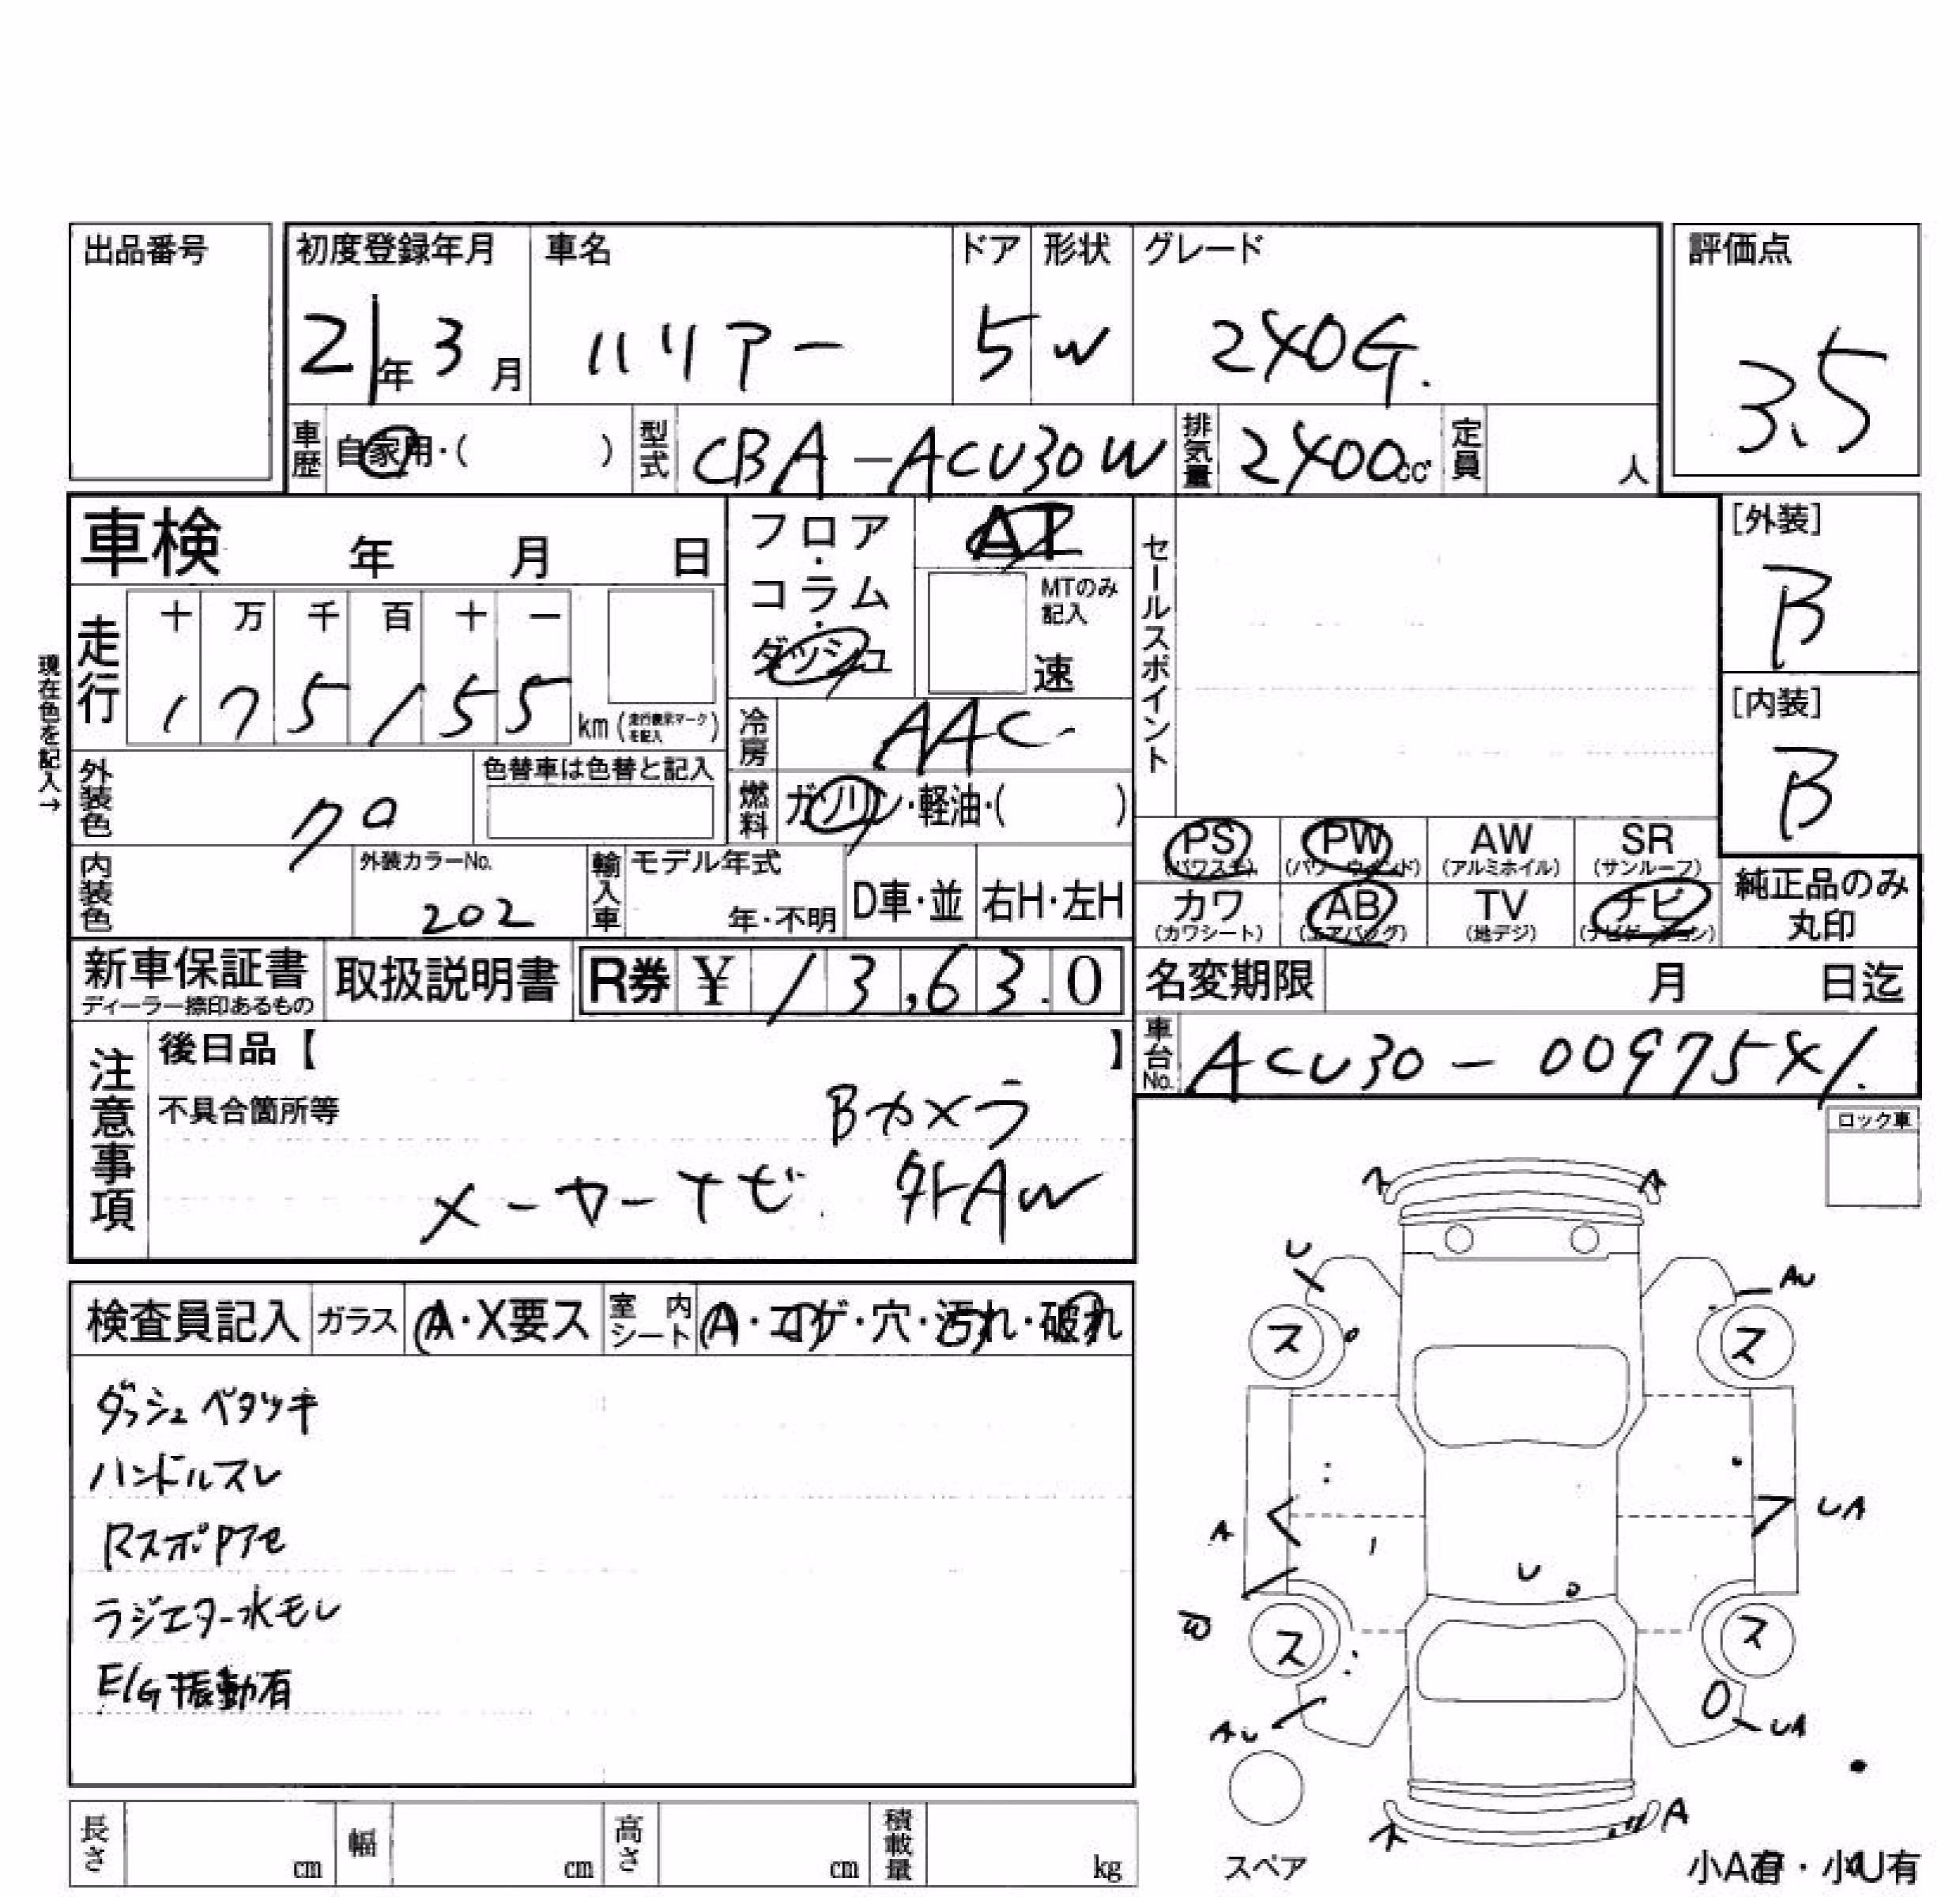 出品番号
初度登録年月 車名 ドア 形状 グレード 評価点
21年 3月 ハリアー 5 W 240G. 3.5
車歴 自家用・( ) 型式 CBA-ACU30W 排気量 2400cc 定員 人
車検 年 月 日
フロア・コラム・ダッシュ
AT
MTのみ記入
速
セールスポイント
[外装]
B
[内装]
B
現在色を記入→
走行 十 万 千 百 十 一
1 7 5 1 5 5 km (走行表示マークを記入)
冷房 AAC
外装色 クロ 色替車は色替と記入
燃料 ガソリン・軽油・( )
内装色 外装カラーNo. 202
輸入車 モデル年式 年・不明 D車・並 右H・左H
PS (パワステ) PW (パワーウィンド) AW (アルミホイル) SR (サンルーフ)
カワ (カワシート) AB (エアバッグ) TV (地デジ) ナビ (ナビゲーション)
純正品のみ丸印
新車保証書 ディーラー捺印あるもの 取扱説明書 R券 ¥ 13,630
名変期限 月 日迄
車台No. ACU30-0097541.
注意事項
後日品【 】
不具合箇所等
Bカメラ
メーカーナビ 外AW
ロック車
検査員記入 ガラス A・X要ス 室内シート A・コゲ・穴・汚れ・破れ
ダッシュベタツキ
ハンドルスレ
RスポPアセ
ラジエター水モレ
E/G振動有
A A
U AU
ス ス
A UA
U
ス ス
AU UA
A A
スペア
小A有・小U有
長さ cm 幅 cm 高さ cm 積載量 kg